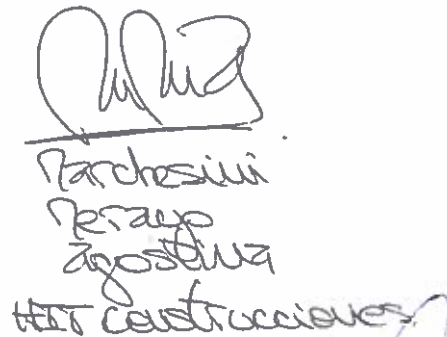 Marchesini
Merayo
agostina
HIT construcciones.